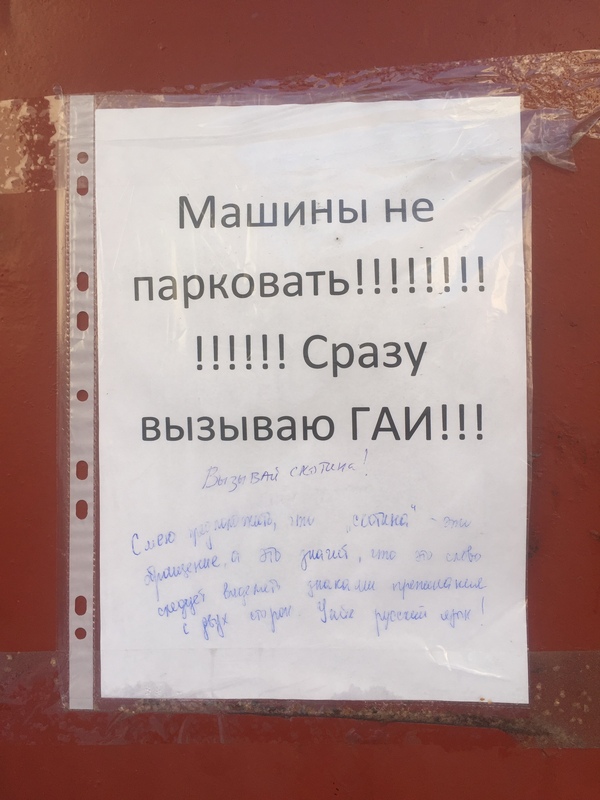 Машины не
парковать!!!!!!!!
!!!!!! Сразу
вызываю ГАИ!!!
Вызывай скотина!
Смею предположить, что "скотина" - это
обращение, а это значит, что это слово
следует выделять знаками препинания
с двух сторон. Учите русский язык!